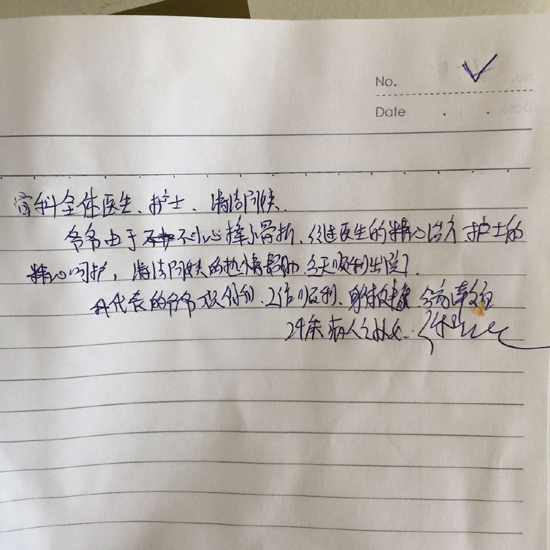 No.
Date
骨科全体医生、护士、清洁阿姨.
爷爷由于不小心摔小骨折,经过医生的精心治疗 护士的
精心呵护,清洁阿姨的热情帮助,今天顺利出院了.
我代表的爷爷祝你们,工作顺利、身体健康
24床病人